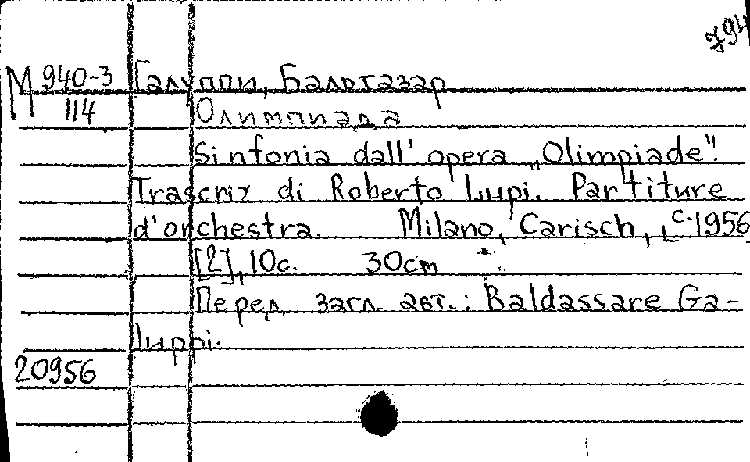 794
М 940-3 Галуппи, Бальтазар
114 Олимпиада
Sinfonia dall' opera „Olimpiade".
Trascriz di Roberto Lupi. Partiture
d'orchestra. Milano, Carisch, c.1956
[2], 10с. 30см
Перед загл. авт.: Baldassare Ga-
luppi.
20956